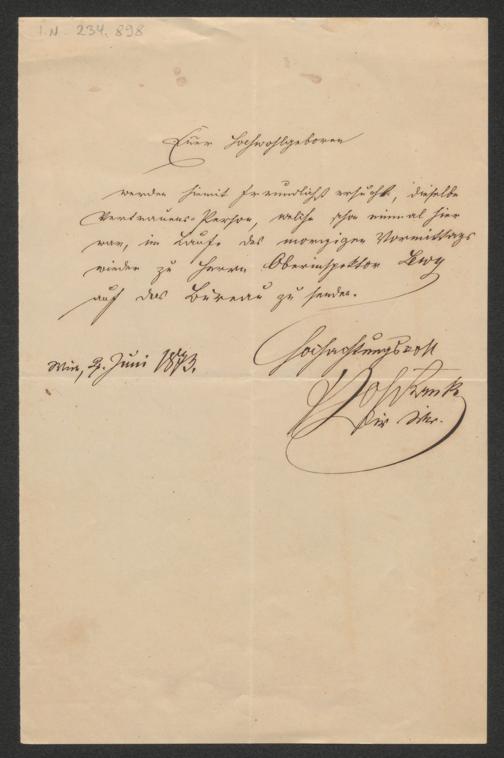 I.N. 234.898
Euer Hochwohlgeboren
werden hiemit freundlichst ersucht, dieselbe
Vertrauens-Person, welche schon einmal hier
war, im Laufe des morgigen Vormittags
wieder zu Herrn Oberinspektor Lewy
auf das Bureau zu senden.
Hochachtungsvoll
Wien, 2. Juni 1893.